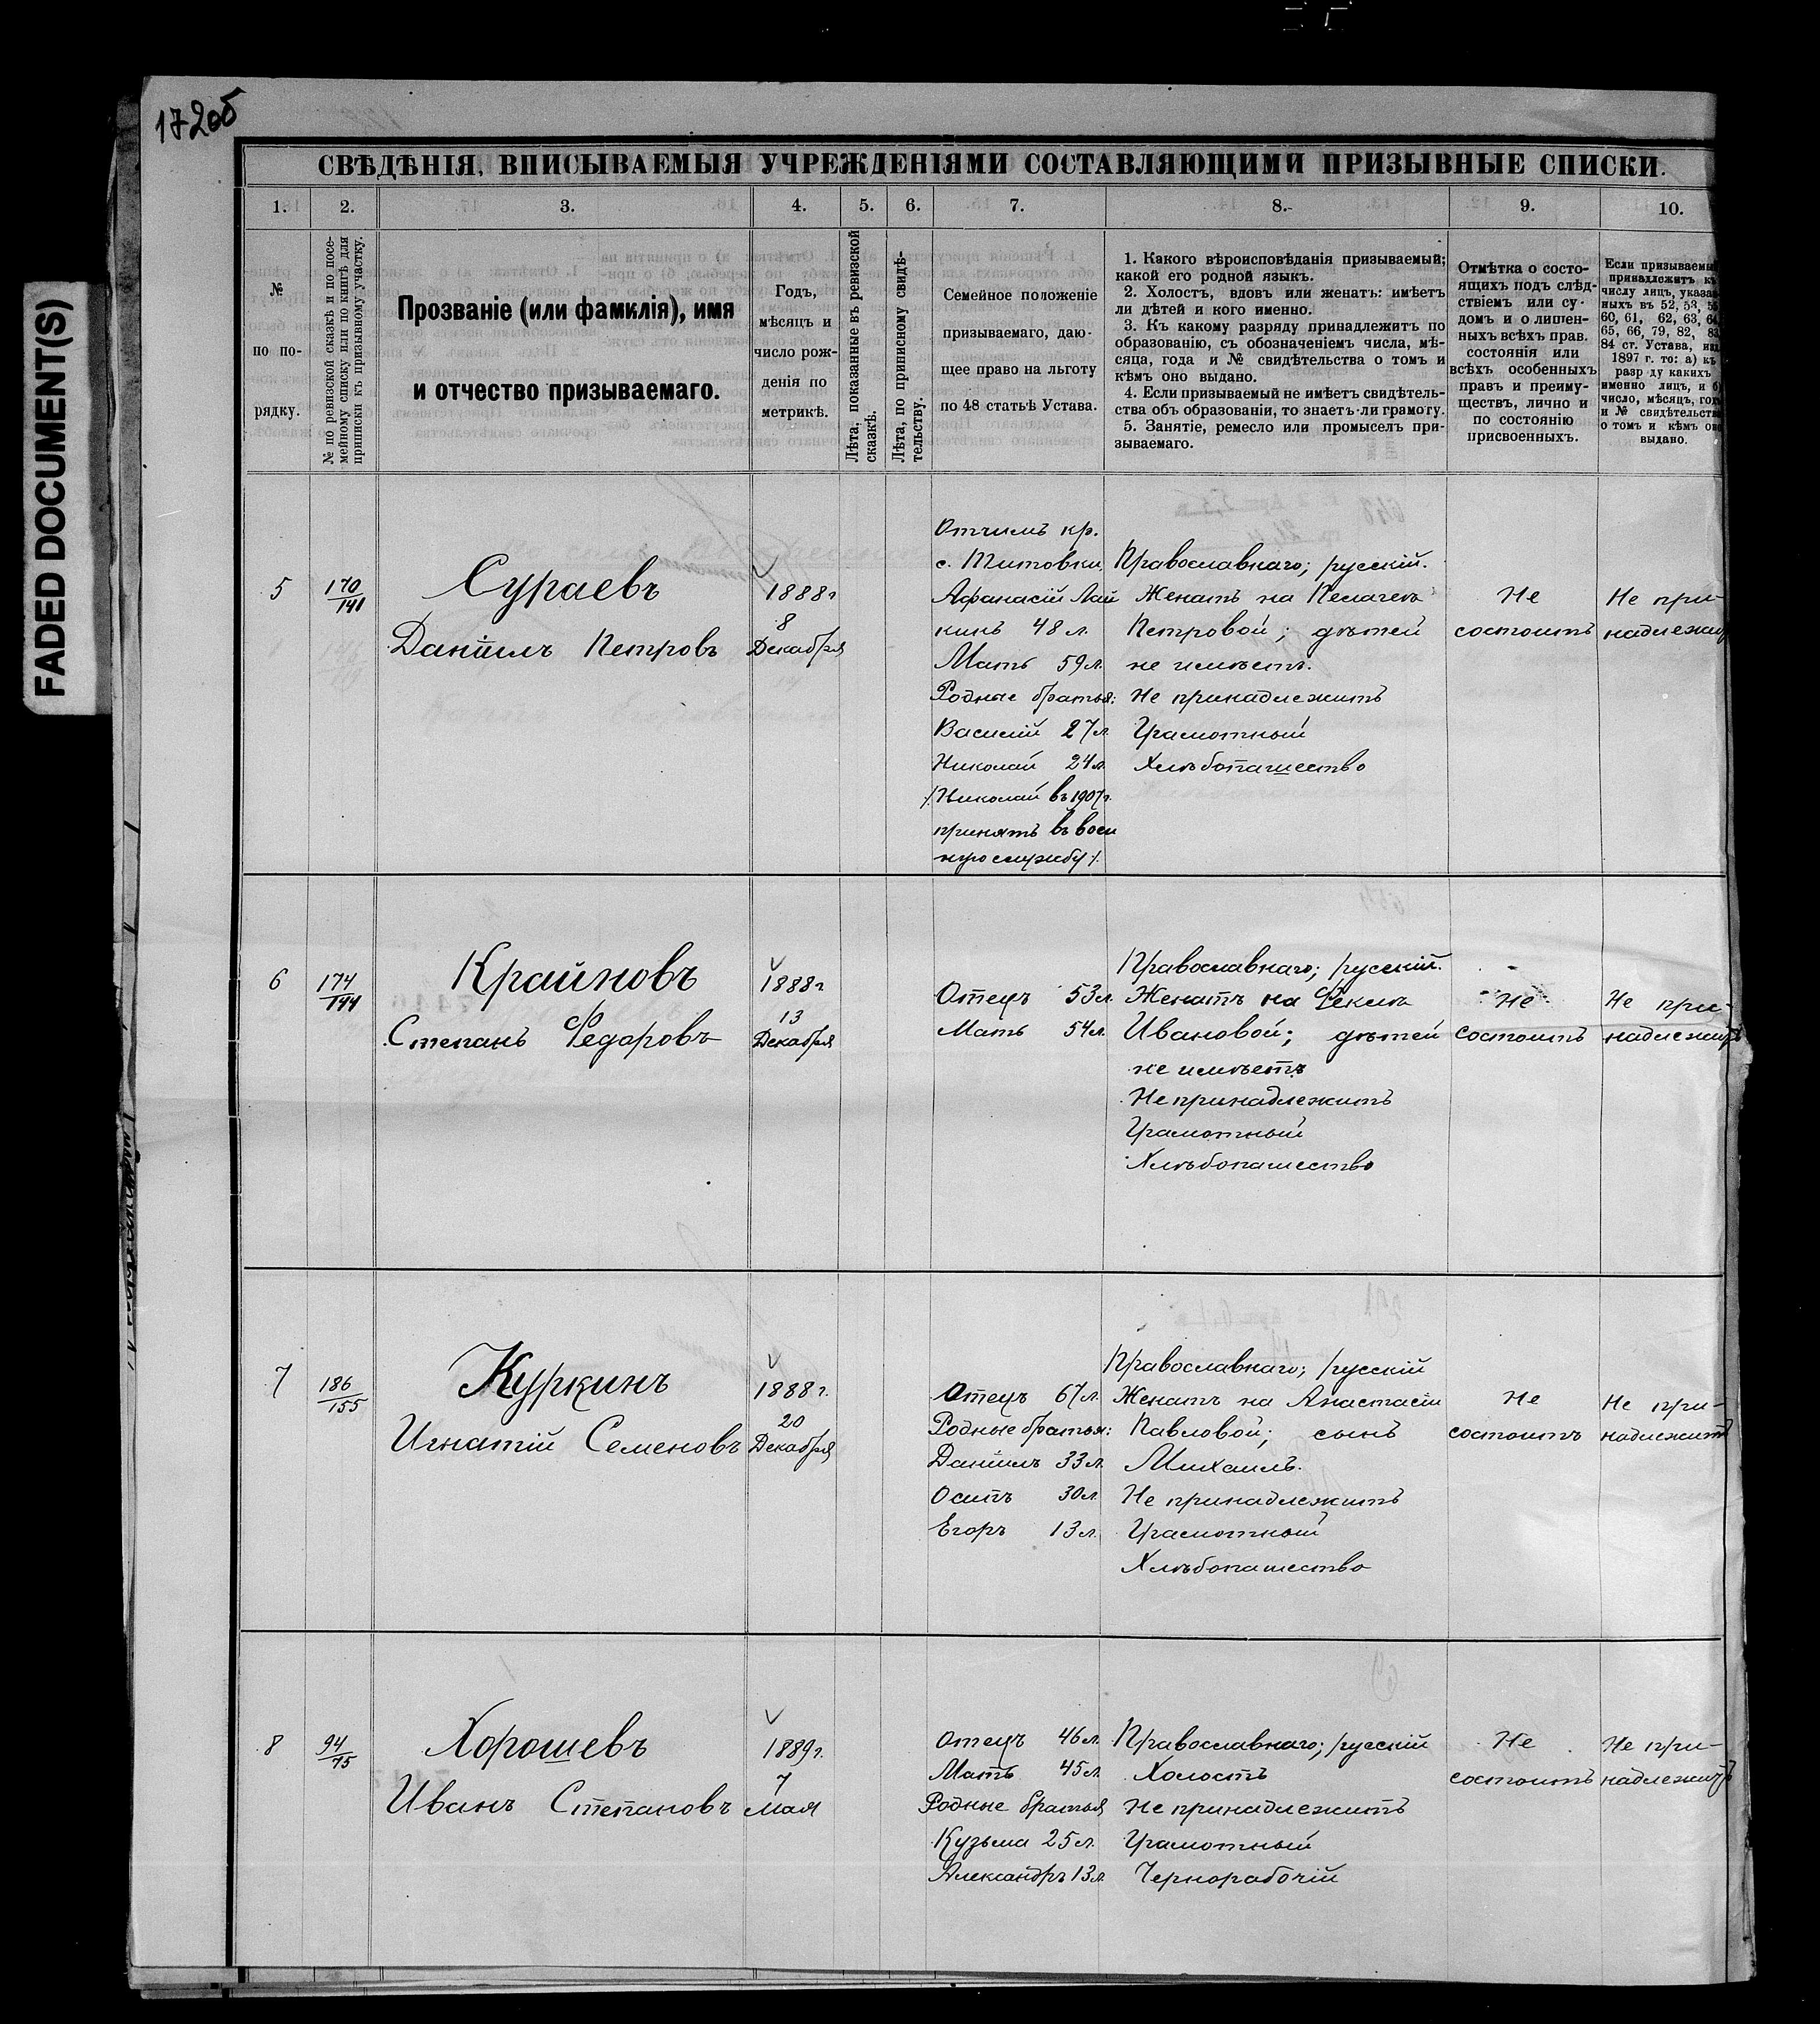 172об
FADED DOCUMENT(S)
СВѢДѢНІЯ, ВПИСЫВАЕМЫЯ УЧРЕЖДЕНІЯМИ СОСТАВЛЯЮЩИМИ ПРИЗЫВНЫЕ СПИСКИ.
1. 2. 3. 4. 5. 6. 7. 8. 9. 10.
№
по по-
рядку.
№ по ревизской сказкѣ и по посе-
мейному списку или по книгѣ для
приписки къ призывному участку.
Прозваніе (или фамилія), имя
и отчество призываемаго.
Годъ,
мѣсяцъ и
число рож-
денія по
метрикѣ.
Лѣта, показанные въ ревизской
сказкѣ.
Лѣта, по приписному свидѣ-
тельству.
Семейное положеніе
призываемаго, даю-
щее право на льготу
по 48 статьѣ Устава.
1. Какого вѣроисповѣданія призываемый;
какой его родной языкъ.
2. Холостъ, вдовъ или женатъ: имѣетъ
ли дѣтей и кого именно.
3. Къ какому разряду принадлежитъ по
образованію, съ обозначеніемъ числа, мѣ-
сяца, года и № свидѣтельства о томъ и
кѣмъ оно выдано.
4. Если призываемый не имѣетъ свидѣтель-
ства объ образованіи, то знаетъ-ли грамоту.
5. Занятіе, ремесло или промыселъ при-
зываемаго.
Отмѣтка о состо-
ящихъ подъ слѣд-
ствіемъ или су-
домъ и о лишен-
ныхъ всѣхъ прав.
состоянія или
всѣхъ особенныхъ
правъ и преиму-
ществъ, лично и
по состоянію
присвоенныхъ.
Если призываемы
принадлежитъ къ
числу лицъ, указан
ныхъ въ 52, 53,
60, 61, 62, 63, 64,
65, 66, 79, 82, 83,
84 ст. Устава, изд.
1897 г. то: а) къ
разр ду какихъ
именно лицъ, и б)
число, мѣсяцъ, годъ
и № свидѣтельства
о томъ и кѣмъ оно
выдано.
5
170/141
Сураевъ
Даніилъ Петровъ
1888г
8
Декабря
Отчимъ кр.
с. Титовки,
Афанасій Лай
кинъ 48 л.
Мать 59 л.
Родные братья:
Василій 27 л.
Николай 24 л.
/Николай въ 1907 г.
принятъ въ воен
ную службу/.
Православнаго; русскій.
Женатъ на Пелагеѣ
Петровой; дѣтей
не имѣетъ.
Не принадлежитъ
Грамотный
Хлѣбопашество
Не
состоитъ
Не при-
надлежитъ
6
174/144
Крайновъ
Степанъ Федоровъ
1888г
13
Декабря
Отецъ 53 л
Мать 54 л.
Православнаго; русскій.
Женатъ на Феклѣ
Ивановой; дѣтей
не имѣетъ
Не принадлежитъ
Грамотный
Хлѣбопашество
Не
состоитъ
Не при-
надлежитъ
7
186/155
Куркинъ
Игнатій Семеновъ
1888 г.
20
Декабря
Отецъ 67 л.
Родные братья:
Даніилъ 33 л.
Осипъ 30 л.
Егоръ 13 л.
Православнаго; русскій
Женатъ на Анастасіи
Павловой; сынъ
Михаилъ.
Не принадлежитъ
Грамотный
Хлѣбопашество
Не
состоитъ
Не при-
надлежитъ
8
94/75
Хорошевъ
Иванъ Степановъ
1889г.
7
Мая
Отецъ 46 л.
Мать 45 л.
Родные братья
Кузьма 25 л.
Александръ 13 л.
Православнаго; русскій
Холостъ
Не принадлежитъ
Грамотный
Чернорабочій
Не
состоитъ
Не при-
надлежитъ